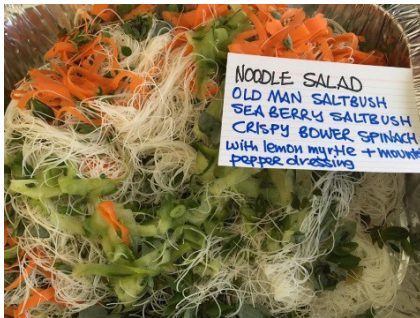 NOODLE SALAD
OLD MAN SALTBUSH
SEA BERRY SALTBUSH
CRISPY BOWER SPINACH
with lemon myrtle +
pepper dressing